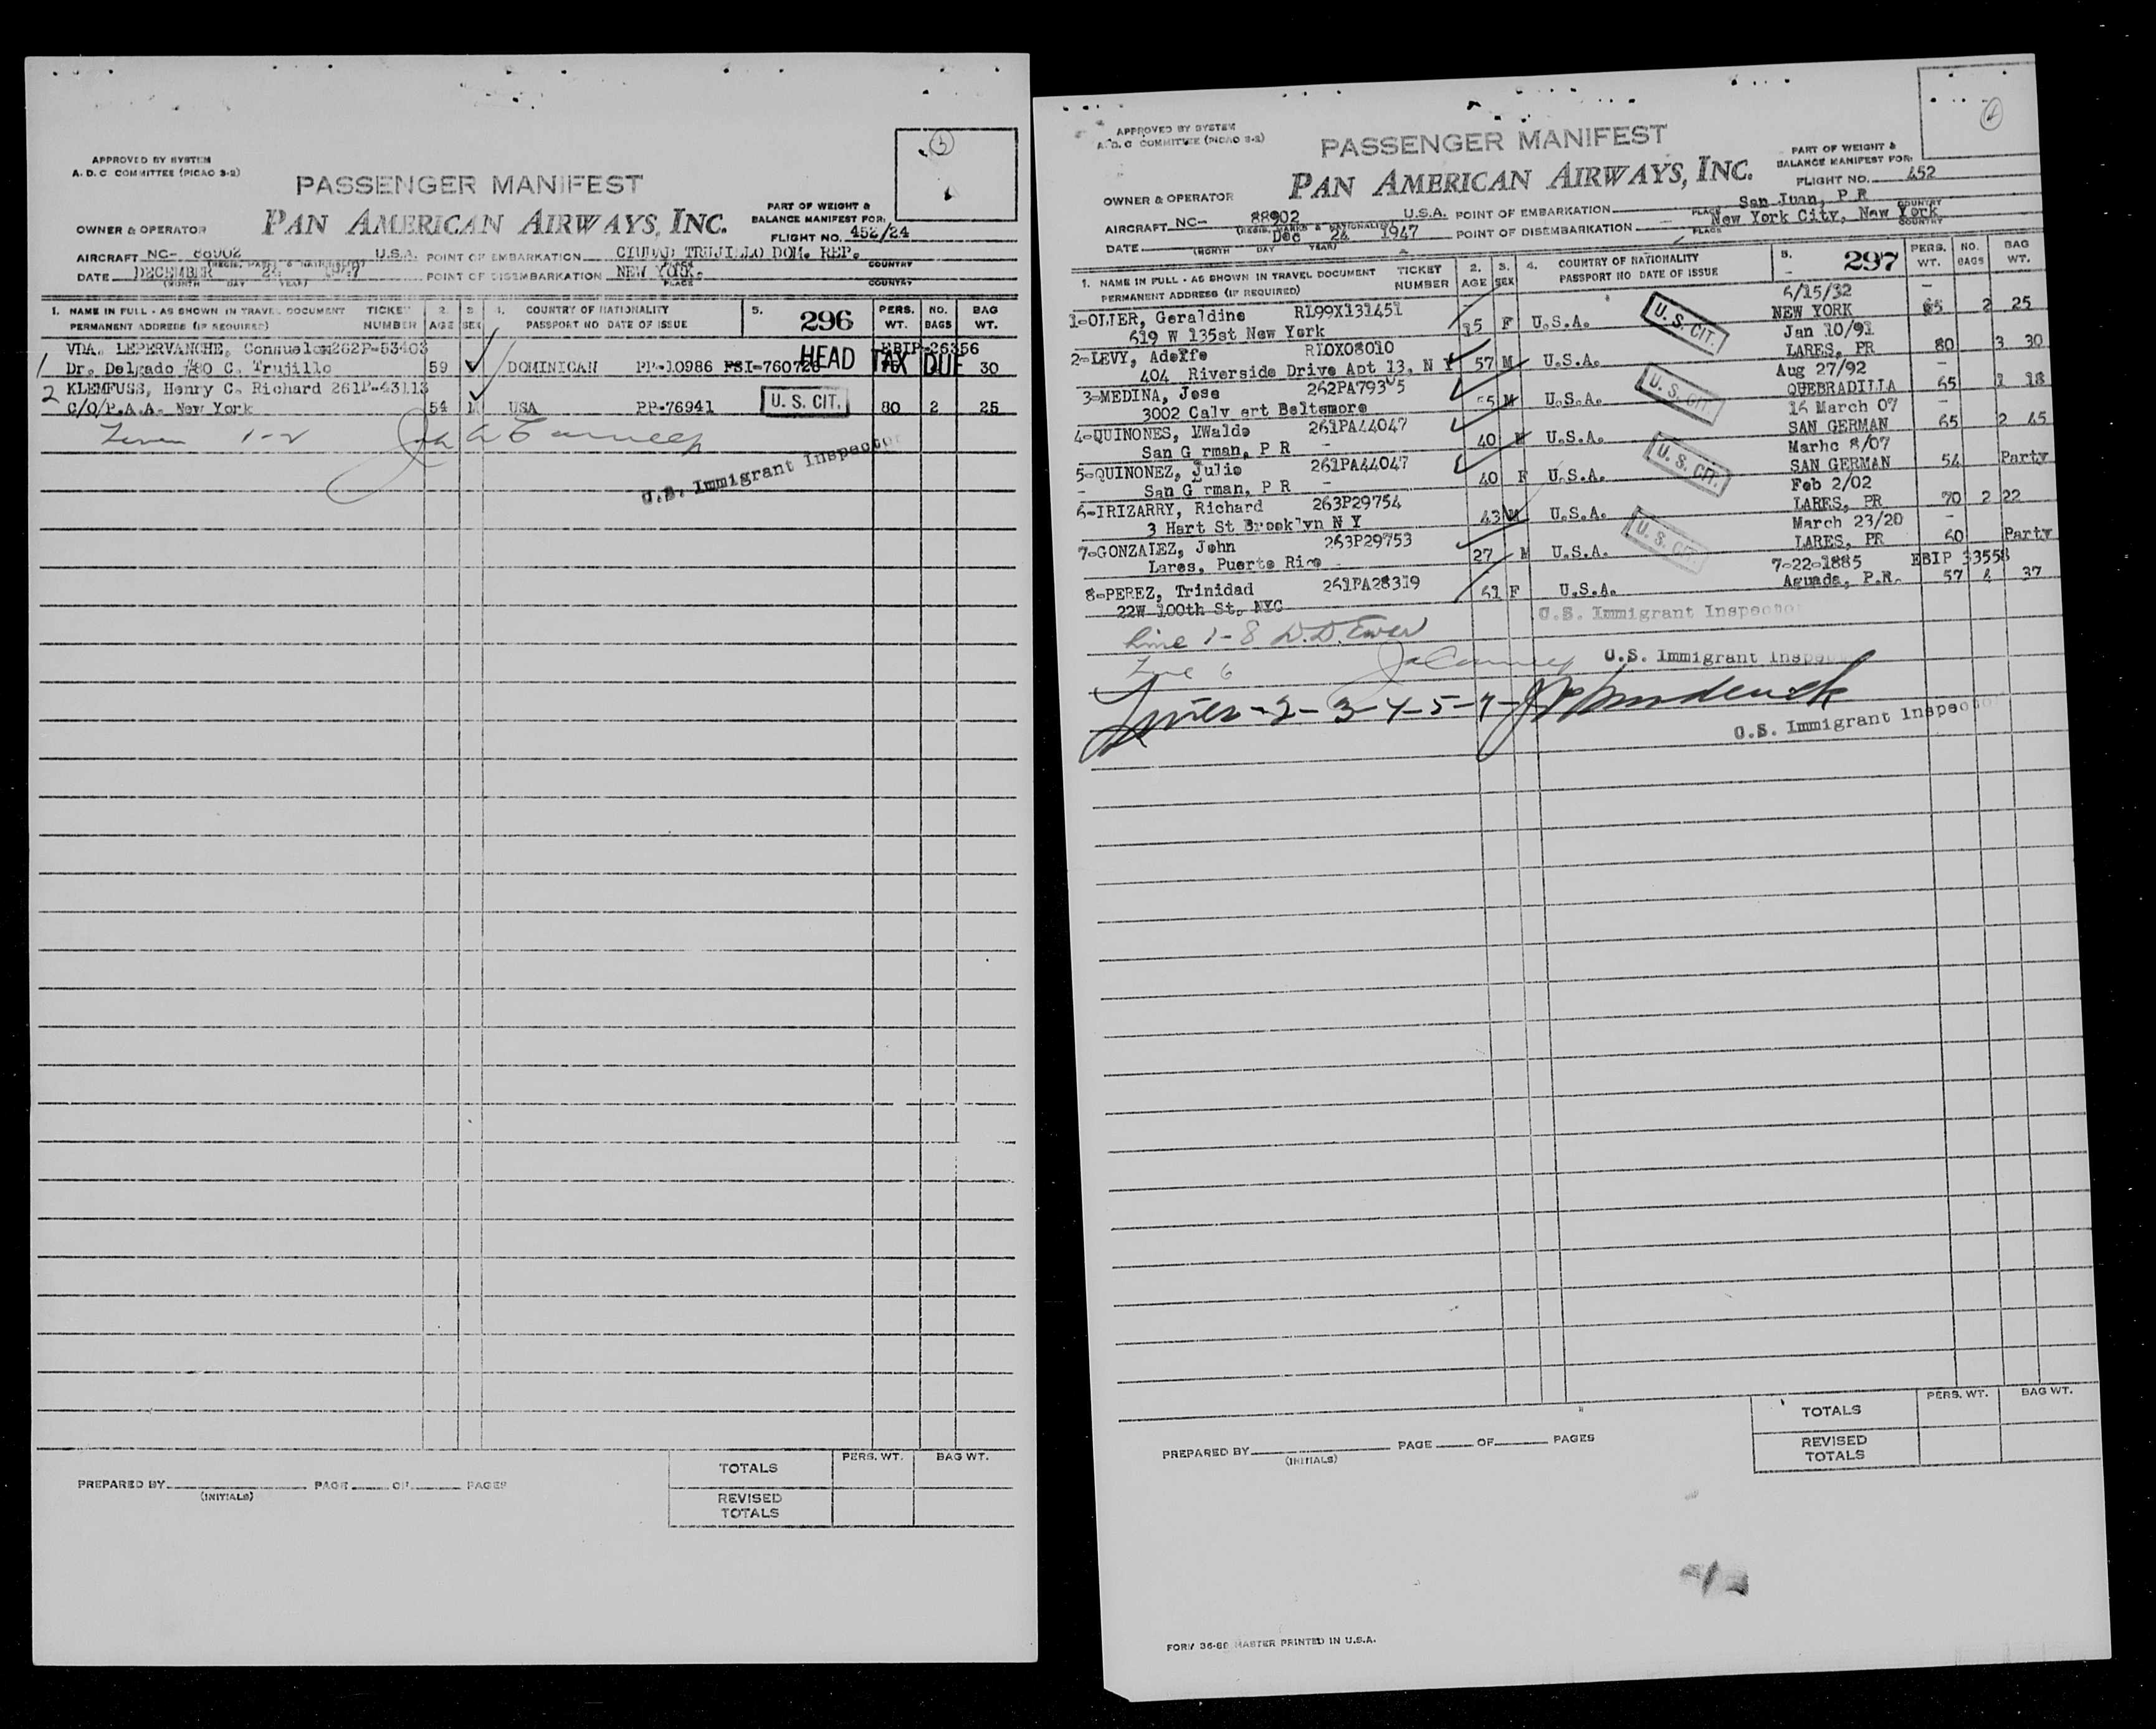 3
APPROVED BY SYSTEM
A. D. C COMMITTEE (PICAO 3-2)
PASSENGER MANIFEST
PART OF WEIGHT &
BALANCE MANIFEST FOR:
OWNER & OPERATOR PAN AMERICAN AIRWAYS, INC.
FLIGHT NO. 452/24
AIRCRAFT NC- 88902 U.S.A. POINT OF EMBARKATION CIUDAD TRUJILLO DOM. REP.
DATE DECEMBER 24 1947 POINT OF DISEMBARKATION NEW YORK.
(MONTH DAY YEAR) PLACE COUNTRY
1. NAME IN FULL - AS SHOWN IN TRAVEL DOCUMENT TICKET 2. 3 4. COUNTRY OF NATIONALITY 5. 296 PERS. NO. BAG
PERMANENT ADDRESS (IF REQUIRED) NUMBER AGE SEX PASSPORT NO DATE OF ISSUE WT. BAGS WT.
VDA. LEPERVANCHE, Consuelo 262P-53403 EBIP-26356
1 Dr. Delgado #80 C. Trujillo 59 DOMINICAN PP-10986 FSI-76072 HEAD TAX DUE 30
2 KLEMFUSS, Henry C. Richard 261P-43113
C/O/P.A.A. New York 54 M USA PP-76941 U. S. CIT. 80 2 25
1-2
U.S. Immigrant Inspector
TOTALS PERS. WT. BAG WT.
PREPARED BY PAGE OF PAGES
(INITIALS)
REVISED
TOTALS
4
APPROVED BY SYSTEM
A. D. C COMMITTEE (PICAO 3-2)
PASSENGER MANIFEST
PART OF WEIGHT &
BALANCE MANIFEST FOR:
OWNER & OPERATOR PAN AMERICAN AIRWAYS, INC.
FLIGHT NO. 452
AIRCRAFT NC- 88902 U.S.A. POINT OF EMBARKATION San Juan, P.R
(REGIS. MARKS & NATIONALITY) PLACE COUNTRY
DATE Dec 24 1947 POINT OF DISEMBARKATION New York City, New York
(MONTH DAY YEAR) PLACE COUNTRY
1. NAME IN FULL - AS SHOWN IN TRAVEL DOCUMENT TICKET 2. 3. 4. COUNTRY OF NATIONALITY 5. 297 PERS. NO. BAG
PERMANENT ADDRESS (IF REQUIRED) NUMBER AGE SEX PASSPORT NO DATE OF ISSUE WT. BAGS WT.
1-OLIER, Geraldine RL99X131451 6/15/32
619 W 135st New York 15 F U.S.A. U. S. CIT. NEW YORK 65 2 25
2-LEVY, Adolfo RLOX08010 Jan 10/91
404 Riverside Drive Apt 13, N Y 57 M U.S.A. LARES, PR 80 3 30
3-MEDINA, Jose 262PA79305 Aug 27/92
3002 Calv ert Beltemore 55 M U.S.A. U. S. CIT. QUEBRADILLA 65 1 18
4-QUINONES, EWaldo 261PA44047 16 March 07
San G rman, P R 40 M U.S.A. SAN GERMAN 65 2 45
5-QUINONEZ, Julio 261PA44047 Marhc 8/07
San G rman, P R 40 F U.S.A. U. S. CIT. SAN GERMAN 54 Party
6-IRIZARRY, Richard 263P29754 Feb 2/02
3 Hart St Brooklyn N Y 43 M U.S.A. LARES, PR 70 2 22
7-GONZALEZ, John 263P29753 March 23/20
Lares, Puerto Rico 27 M U.S.A. U. S. CIT. LARES, PR 60 Party
8-PEREZ, Trinidad 261PA28319 7-22-1885 EBIP 33558
22W 100th St. NYC 61 F U.S.A. Aguada, P.R. 57 4 37
U.S. Immigrant Inspector
Line 1-8 D.D. Ewer
Line 6 U.S. Immigrant Inspector
Lines-2-3-4-5-7-
U.S. Immigrant Inspector
PERS. WT. BAG WT.
TOTALS
PREPARED BY PAGE OF PAGES
(INITIALS)
REVISED
TOTALS
FORM 36-69 MASTER PRINTED IN U.S.A.